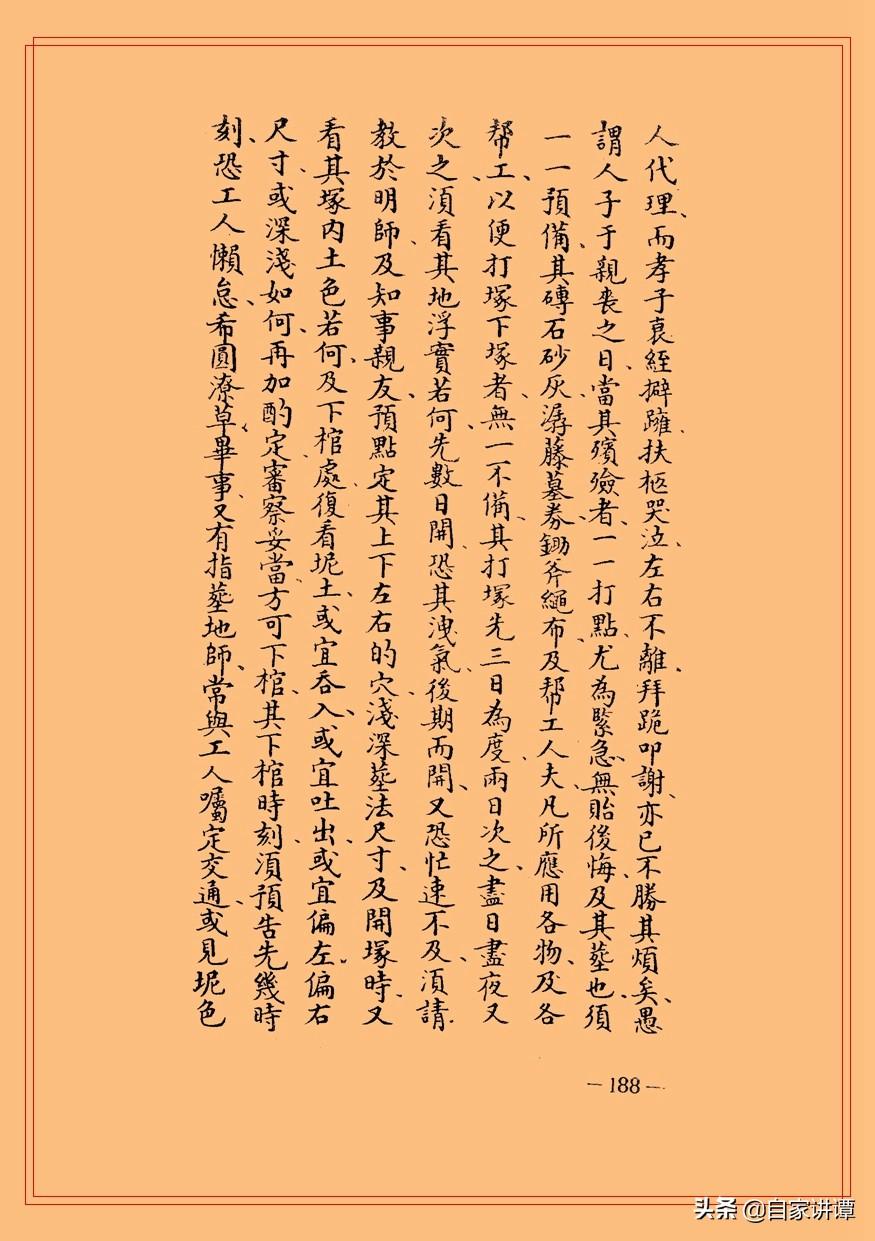 人代理、而孝子哀絰擗踊、扶柩哭泣、左右不離、拜跪叩謝、亦已不勝其煩矣、愚
謂人子于親喪之日、當其殯殮者、一一打點、尤為緊急、無貽後悔、及其塟也、須
一一預備、其磚石砂灰、潺藤墓券、鋤斧繩布、及帮工人夫、凡所應用各物、及各
帮工、以便打塚、下塚者、無一不備、其打塚先三日為度、兩日次之、盡日盡夜又
次之、須看其地浮實若何、先數日開、恐其洩氣、後期而開、又恐忙速不及、須請
教於明師、及知事親友、預點定其上下左右的穴、淺深塟法尺寸、及開塚時、又
看其塚內土色若何、及下棺處、復看坭土、或宜吞入、或宜吐出、或宜偏左、偏右
尺寸、或深淺如何、再加酌定、審察妥當、方可下棺、其下棺時刻、須預告先幾時
刻、恐工人懶怠、希圓潦草畢事、又有指塟地師、常與工人囑定交通、或見坭色
—188—
头条 @自家讲谭